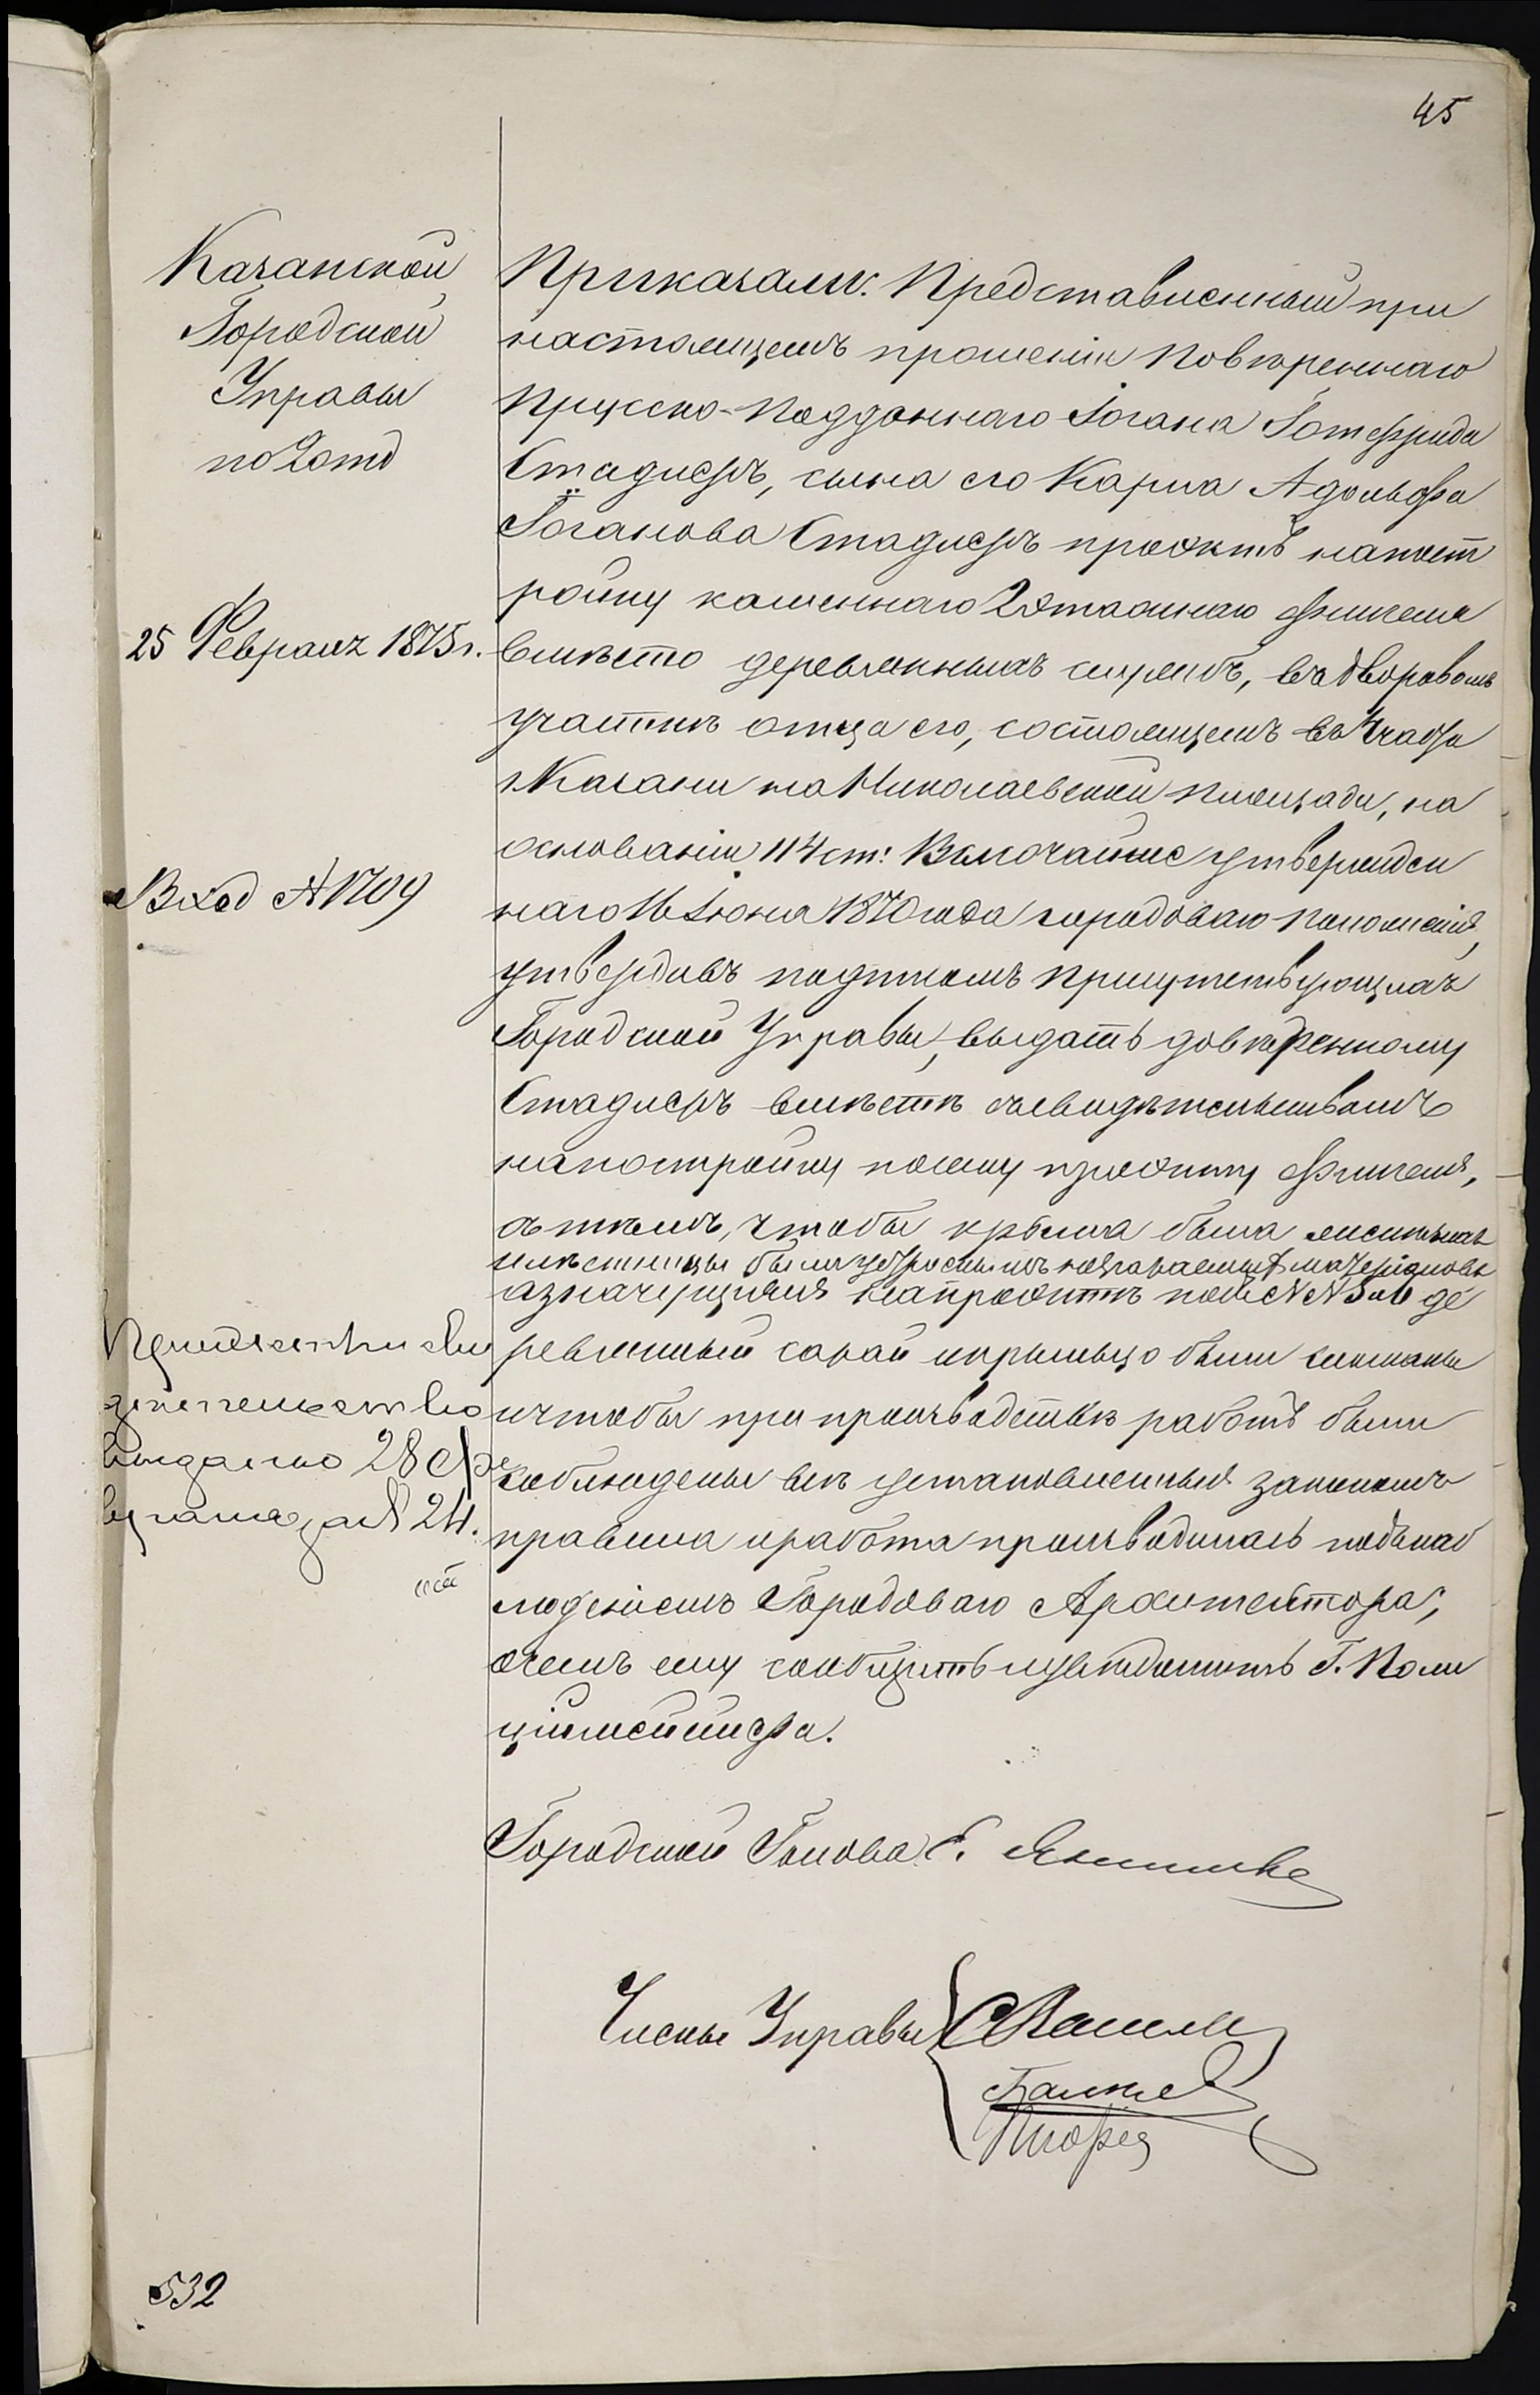 45
Казанской
Городской
Управы
по 2 отд
25 Февраля 1875 г.
Вход № 1709
Приказали: Представленный при
настоящемъ прошеніи Повѣреннаго
Прусско-Подданнаго Іогана Готфрида
Стадлеръ, сына его Карла Адольфа
Іоганова Стадлеръ проэктъ на пост
ройку каменнаго 2 этажнаго флигеля
вмѣсто деревянныхъ службъ, въ дворовомъ
участкѣ отца его, состоящемъ въ 1 части
г. Казани на Николаевской площади, на
основаніи 114 ст: Высочайше утвержден
наго 16 Іюня 1870 года городоваго положенія,
утвердивъ подписомъ присутствующихъ
Городской Управы, выдать довѣренному
Стадлеръ вмѣстѣ съ свидѣтельствомъ
на постройку по сему проэкту флигеля,
съ тѣмъ, чтобы крыша была желѣзная
лѣстницы были устроены изъ несгараемыхъ матеріаловъ
а значущіяся на проэктѣ подъ №№ 5 и 6 де
ревянный сарай и крыльцо были сломаны
и чтобы при производствѣ работъ были
соблюдены всѣ установленныя закономъ
правила и работа производилась подъ наб
люденіемъ Городоваго Архитектора,
о чемъ ему сообщить и увѣдомить Г. Поли
ціймейстера.
выдано 28 фе
враля за № 24.
Городской Голова Е. Янишевс
Члены Управы
532